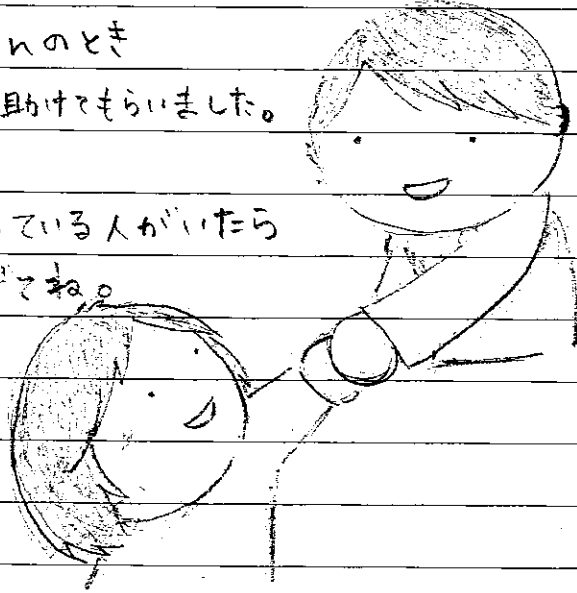 んのとき
助けてもらいました。
ている人がいたら
てね。